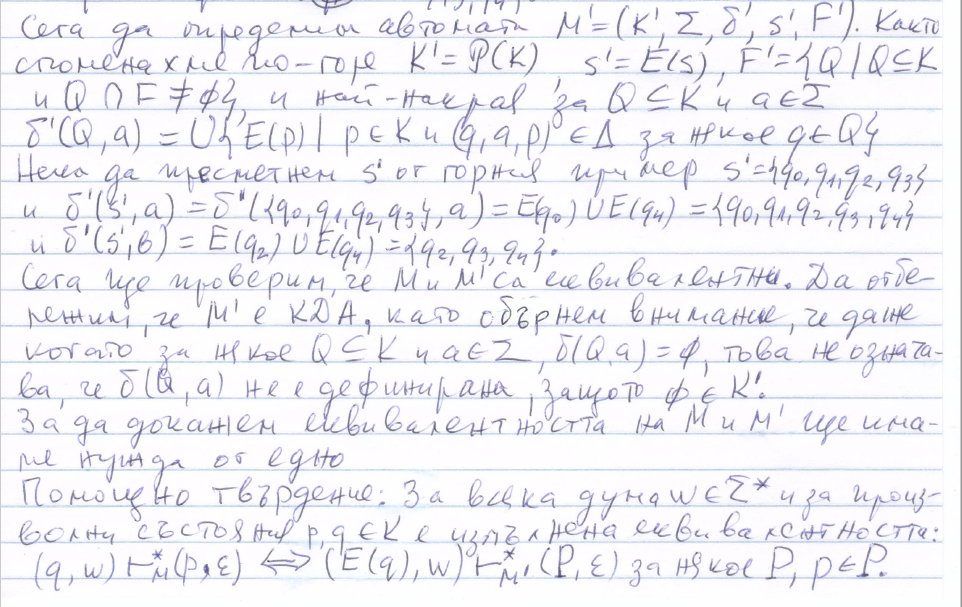 Сега да определим автомата M'=(K', Σ, δ', s', F'). Както
споменахме по-горе K'=P(K), s'=E(s), F'={Q|Q⊆K
и Q∩F≠ϕ}, и най-накрая за Q⊆K и a∈Σ
δ'(Q,a) = U{E(p)| p∈K и (q,a,p)∈Δ за някое q∈Q}
Нека да пресметнем s' от горния пример s'={q0,q1,q2,q3}
и δ'(s',a) = δ'({q0,q1,q2,q3},a) = E(q0) U E(q4) = {q0,q1,q2,q3,q4}
и δ'(s',b) = E(q2) U E(q4) = {q2,q3,q4}.
Сега ще проверим, че M и M' са еквивалентни. Да отбе-
лежим, че M' е КДА, като обърнем внимание, че даже
когато за някое Q⊆K и a∈Σ, δ(Q,a)=ϕ, това не означа-
ва, че δ(Q,a) не е дефинирана, защото ϕ∈K'.
За да докажем еквивалентността на M и M' ще има-
ме нужда от едно
Помощно твърдение: За всяка дума w∈Σ* и за произ-
волни състояния p,q∈K е изпълнена еквивалентността:
(q,w)⊢*M(p,ε) ⟺ (E(q),w)⊢*M'(P,ε) за някое P, p∈P.